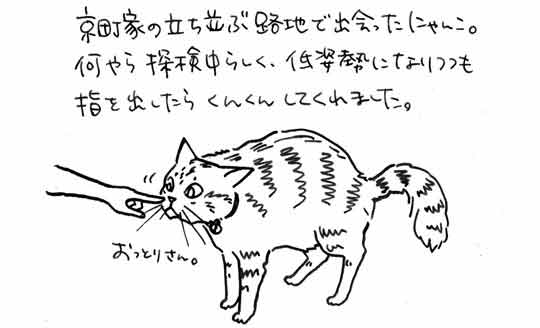 京町家の立ち並ぶ路地で出会ったにゃんこ。
何やら探検中らしく、低姿勢になりつつも
指を出したらくんくんしてくれました。
おっとりさん。